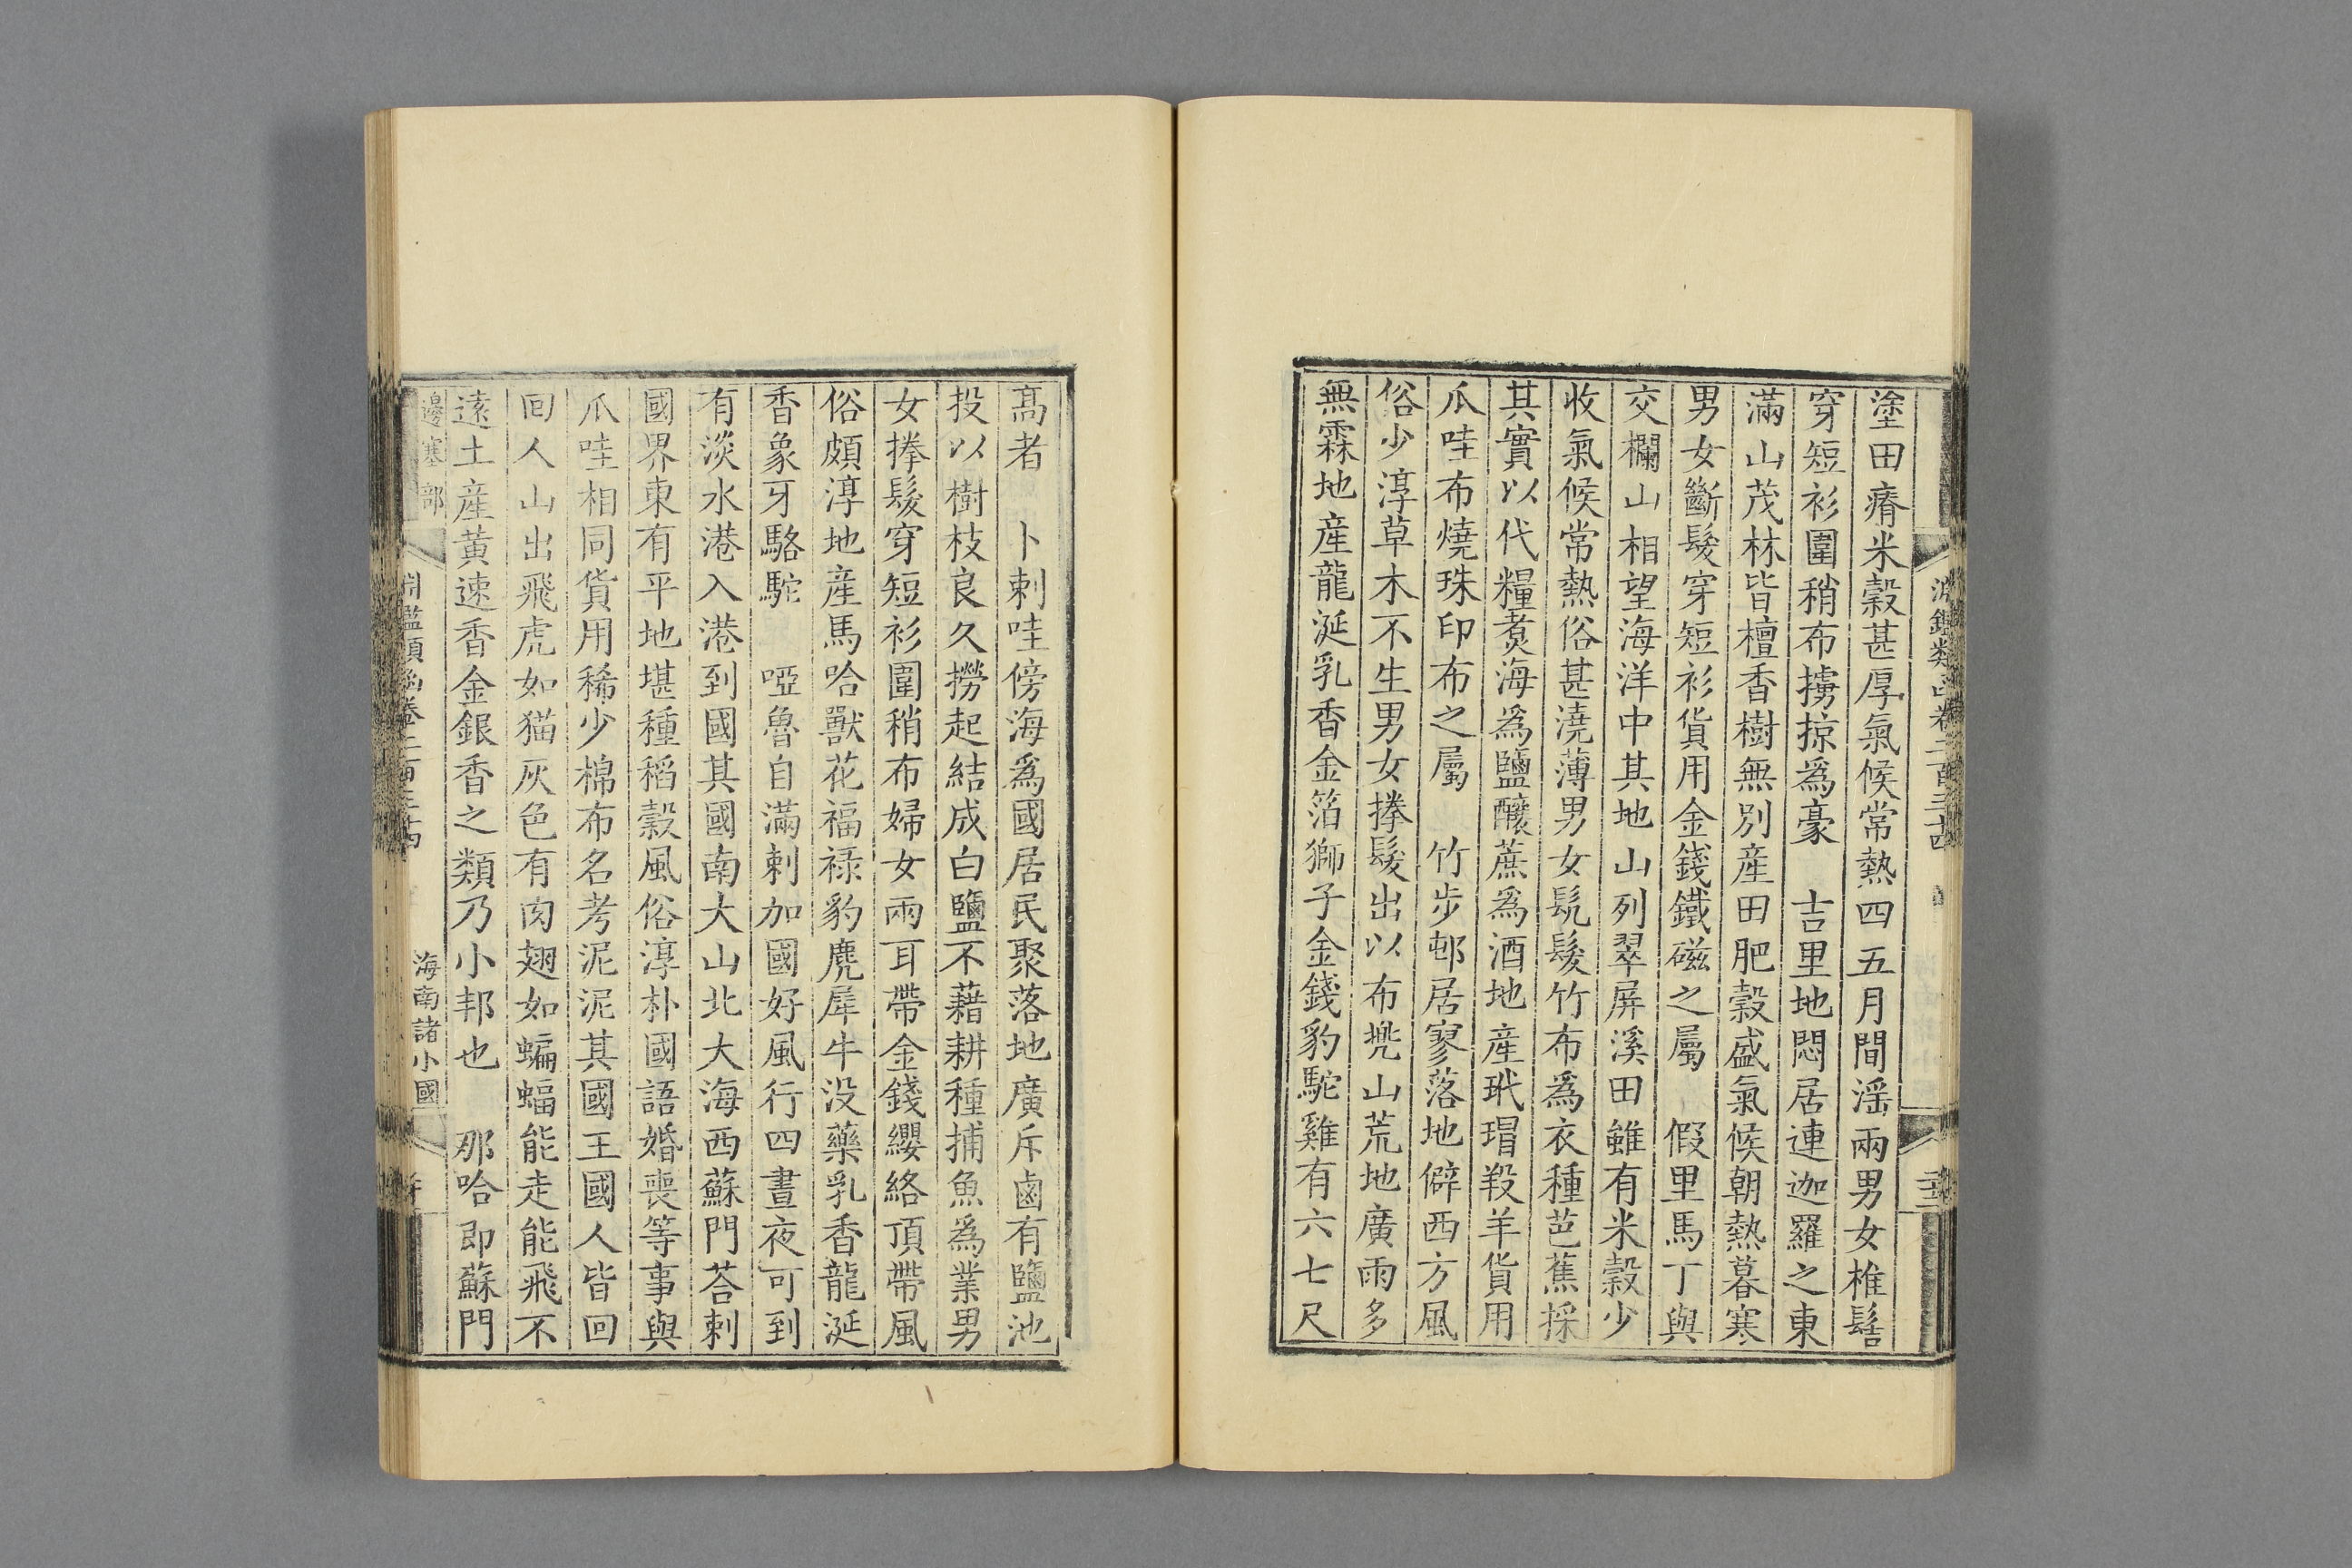 塗田瘠米穀甚厚氣候常熱四五月間滛兩男女椎髻
穿短衫圍稍布擄掠爲豪　吉里地悶居連迦羅之東
滿山茂林皆檀香樹無別産田肥穀盛氣候朝熱暮寒
男女斷髮穿短衫貨用金錢鐵磁之屬　假里馬丁與
交欄山相望海洋中其地山列翠屏溪田雖有米穀少
收氣候常熱俗甚澆薄男女髡髮竹布爲衣種芭蕉採
其實以代糧煑海爲鹽釀蔗爲酒地産玳瑁羖羊貨用
爪哇布燒珠印布之屬　竹步邨居寥落地僻西方風
俗少淳草木不生男女捲髮出以布兠山荒地廣雨多
無霖地産龍涎乳香金箔獅子金錢豹駝雞有六七尺
高者　卜剌哇傍海爲國居民聚落地廣斥鹵有鹽池
投以樹枝良久撈起結成白鹽不藉耕種捕魚爲業男
女捲髮穿短衫圍稍布婦女兩耳帶金錢纓絡頂帶風
俗頗淳地産馬哈獸花福祿豹麂犀牛没藥乳香龍涎
香象牙駱駝　啞魯自滿剌加國好風行四晝夜可到
有淡水港入港到國其國南大山北大海西蘇門荅剌
國界東有平地堪種稻穀風俗淳朴國語婚喪等事與
爪哇相同貨用稀少棉布名考泥泥其國王國人皆回
回人山出飛虎如猫灰色有肉翅如蝙蝠能走能飛不
遠土産黃速香金銀香之類乃小邦也　那哈即蘇門
邊塞部　淵鑑類函卷二百三十四　海南諸小國